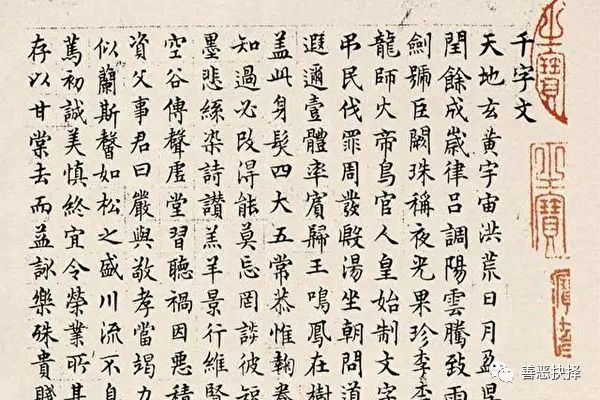 千字文
天地玄黄宇宙洪荒日月盈昃
閏餘成歲律吕調陽雲騰致雨
劍號巨闕珠稱夜光果珍李
龍師火帝鳥官人皇始制文字
弔民伐罪周發殷湯坐朝問道
遐邇壹體率賓歸王鳴鳳在樹
盖此身髮四大五常恭惟鞠養
知過必改得能莫忘罔談彼短
墨悲絲染詩讃羔羊景行維賢
空谷傳聲虚堂習聽禍因惡積
資父事君曰嚴與敬孝當竭力
似蘭斯馨如松之盛川流不息
篤初誠美慎終宜令榮業所基
存以甘棠去而益詠樂殊貴賤
善恶抉择